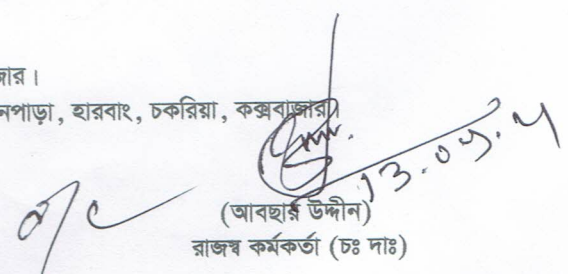 জার।
নপাড়া, হারবাং, চকরিয়া, কক্সবাজার।
(আবছার উদ্দীন)
রাজস্ব কর্মকর্তা (চঃ দাঃ)